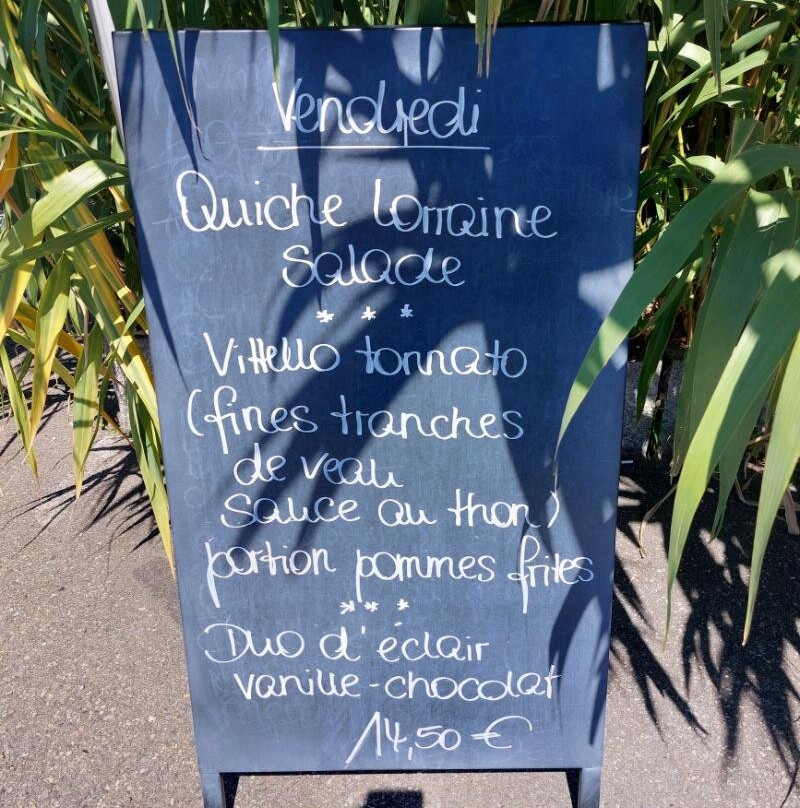 Vendredi
Quiche Lorraine
Salade
* * *
Vittello tonnato
(fines tranches
de veau
sauce au thon)
portion pommes frites
* * *
Duo d'éclair
vanille-chocolat
14,50 €